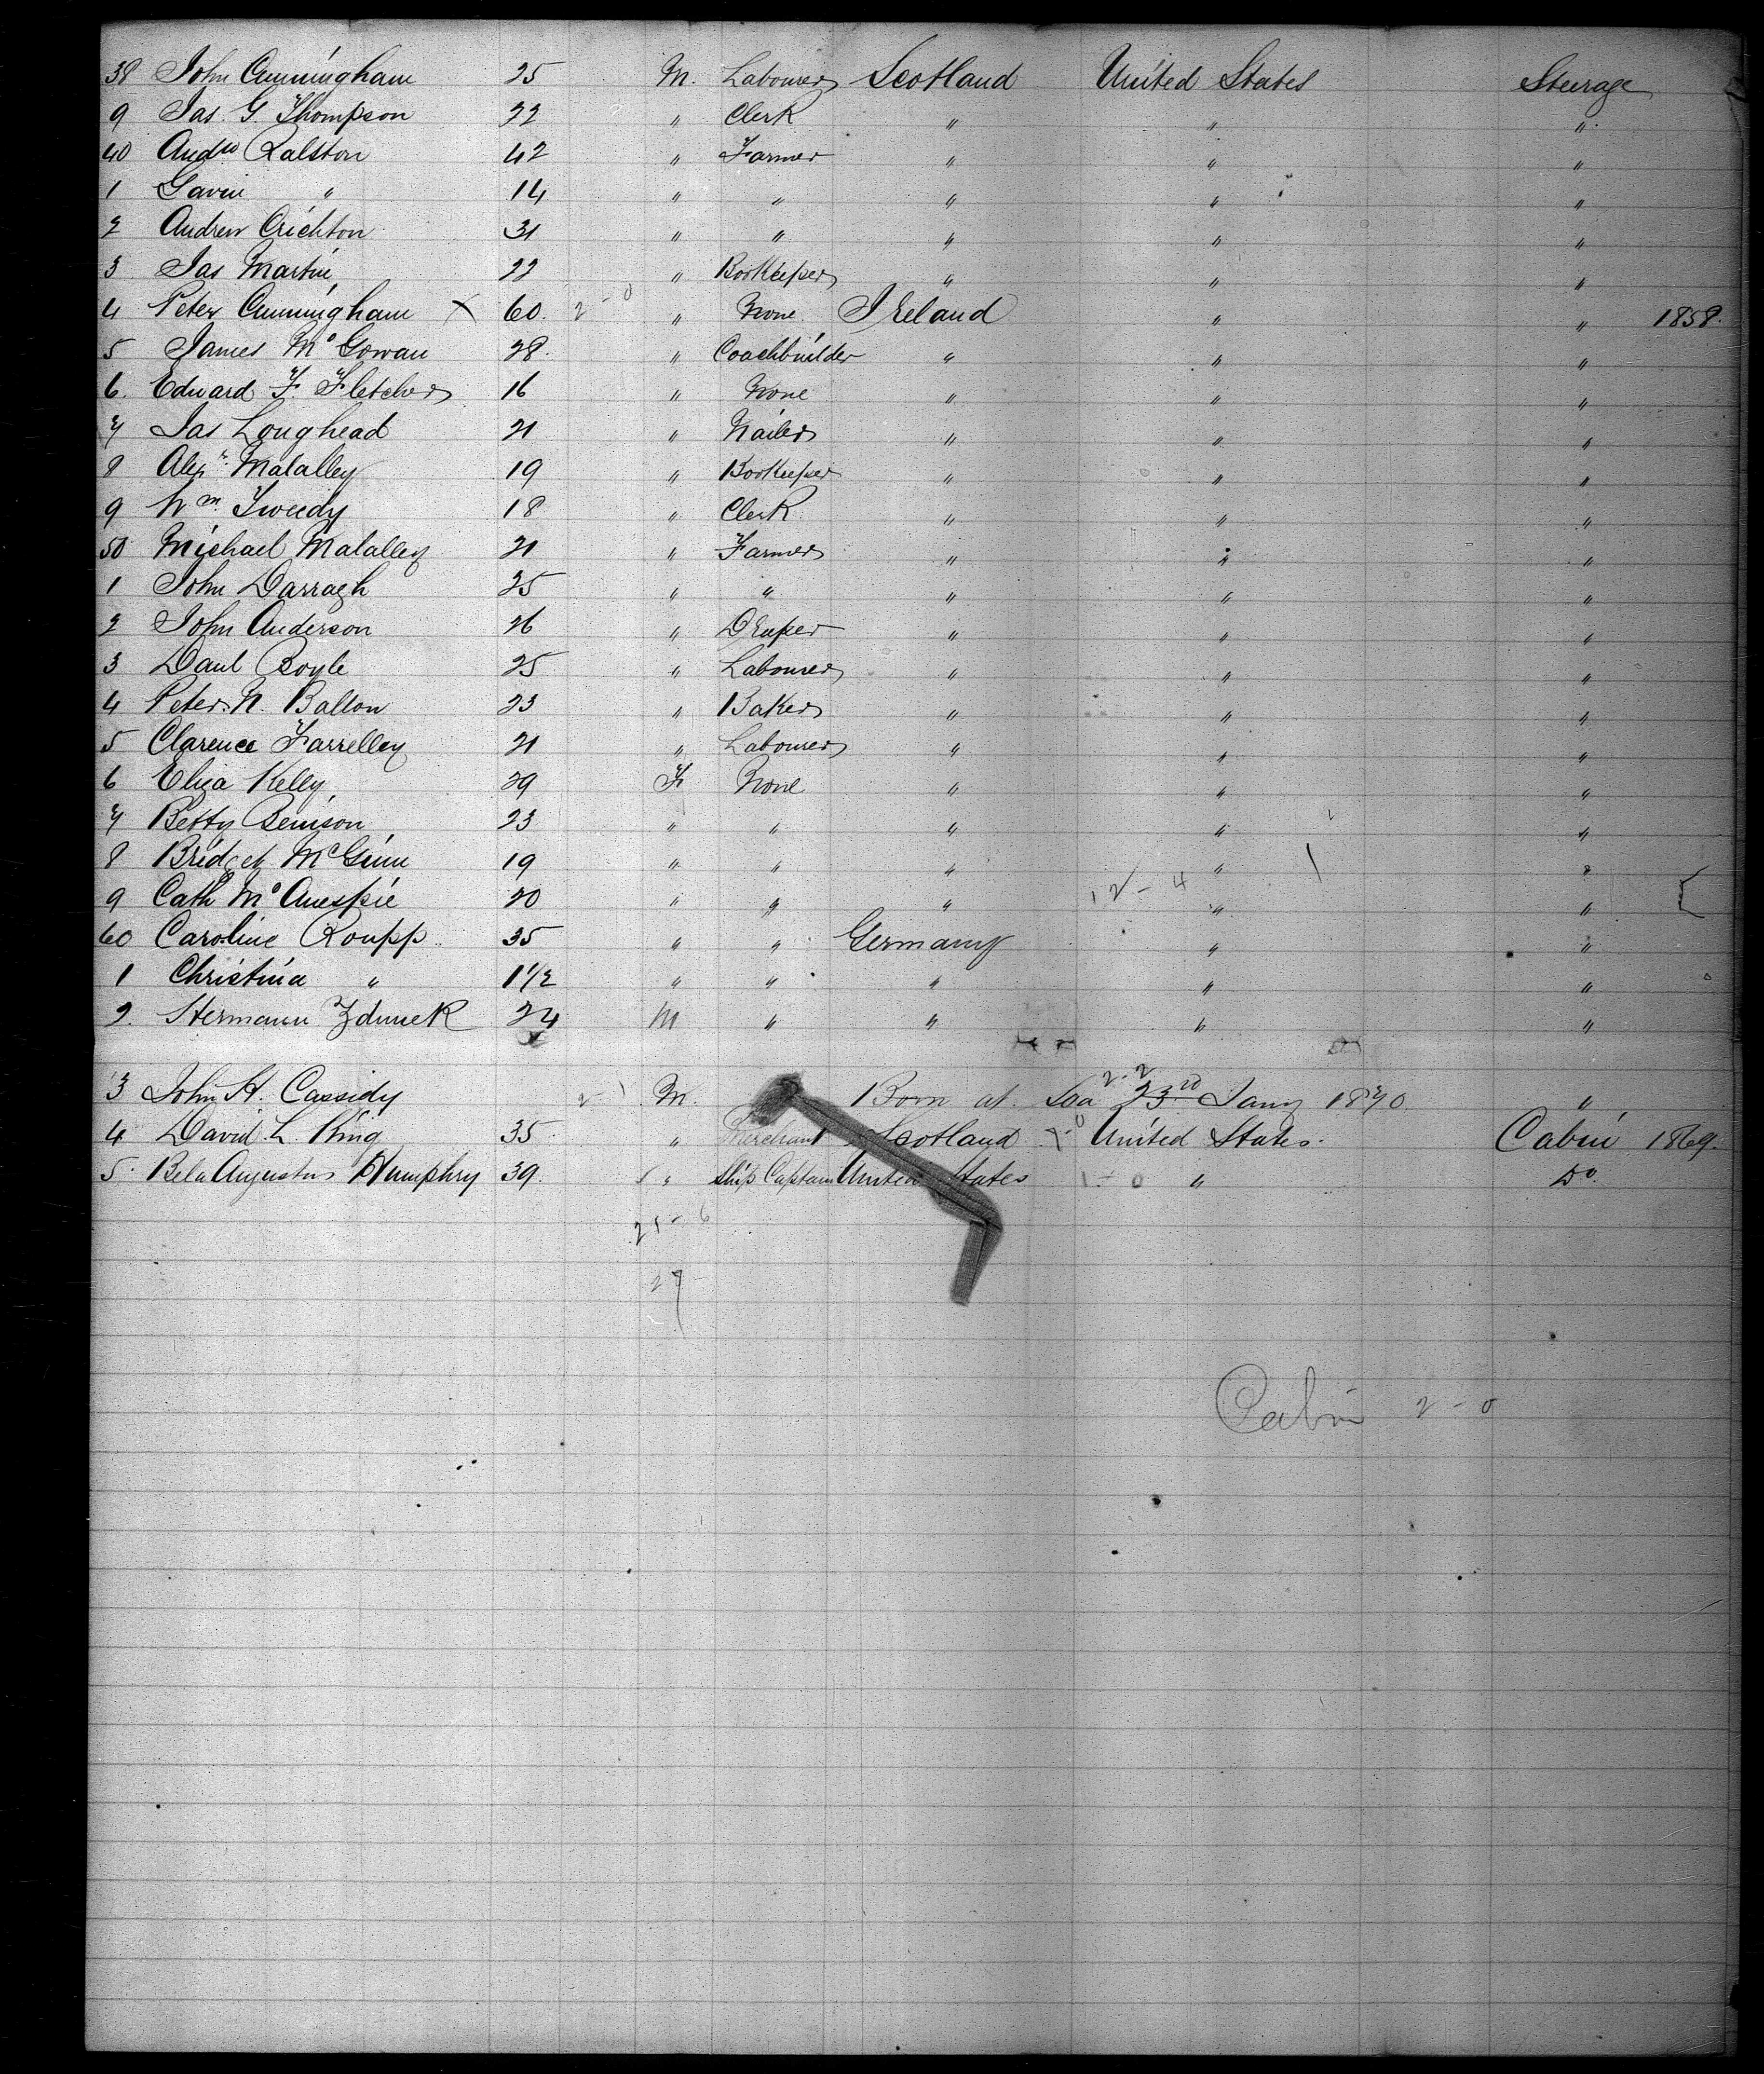 38 John Cunningham 25 M. Labourer Scotland United States Steerage
9 Jas. G. Thompson 22 " Clerk " " "
40 Andw Ralston 42 " Farmer " " "
1 Gavin " 14 " " " " "
2 Andrew Crichton 31 " " " " "
3 Jas Martin 22 " Bookeeper " " "
4 Peter Cunningham X 60. 2-0 " None Ireland " " 1858.
5 James Mc Gowan 28. " Coachbuilder " " "
6. Edward F. Fletcher 16 " None " " "
7 Jas Loughead 21 " Nailer " " "
8 Alexr. Malalley 19 " Bookeeper " " "
9 Wm. Tweedy 18 " Clerk " " "
50 Michael Malalley 21 " Farmer " " "
1 John Darragh 25 " " " " "
2 John Anderson 26 " Draper " " "
3 Danl Boyle 25 " Labourer " " "
4 Peter N. Balton 23 " Baker " " "
5 Clarence Farrelley 21 " Labourer " " "
6 Eliza Kelly 29 F None " " "
7 Betty Benison 23 " " " " "
8 Bridget McGinn 19 " " " " "
9 Cath Mc Anespie 20 " " " 12-4 " "
60 Caroline Roupp 35 " " Germany " "
1 Christina " 1 1/2 " " " " "
2. Hermann Zdunek 24 M " " " "
3 John H. Cassidy M. Born at Sea 2-2 23rd Jany 1870 "
4 David L. King 35 " Merchant Scotland United States. Cabin 1869.
5. Bela Augustus Humphry 39. " Ship Captain United States 1-0 " Do.
21-6
27
Cabin 2-0